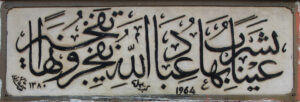 عينا يشرب بها عباد الله يفجرونها تفجيرا
1964
١٣٨٠